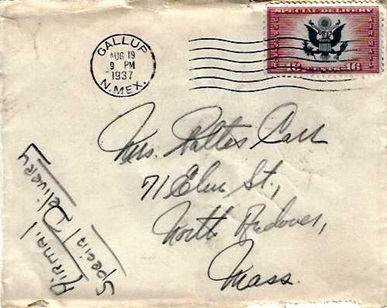 GALLUP
AUG 19
9 PM
1937
N. MEX.
SPECIAL DELIVERY
16 CENTS 16
Mrs. Walter Carr
71 Elm St.,
North Andover,
Mass.
Airmail
Special Delivery